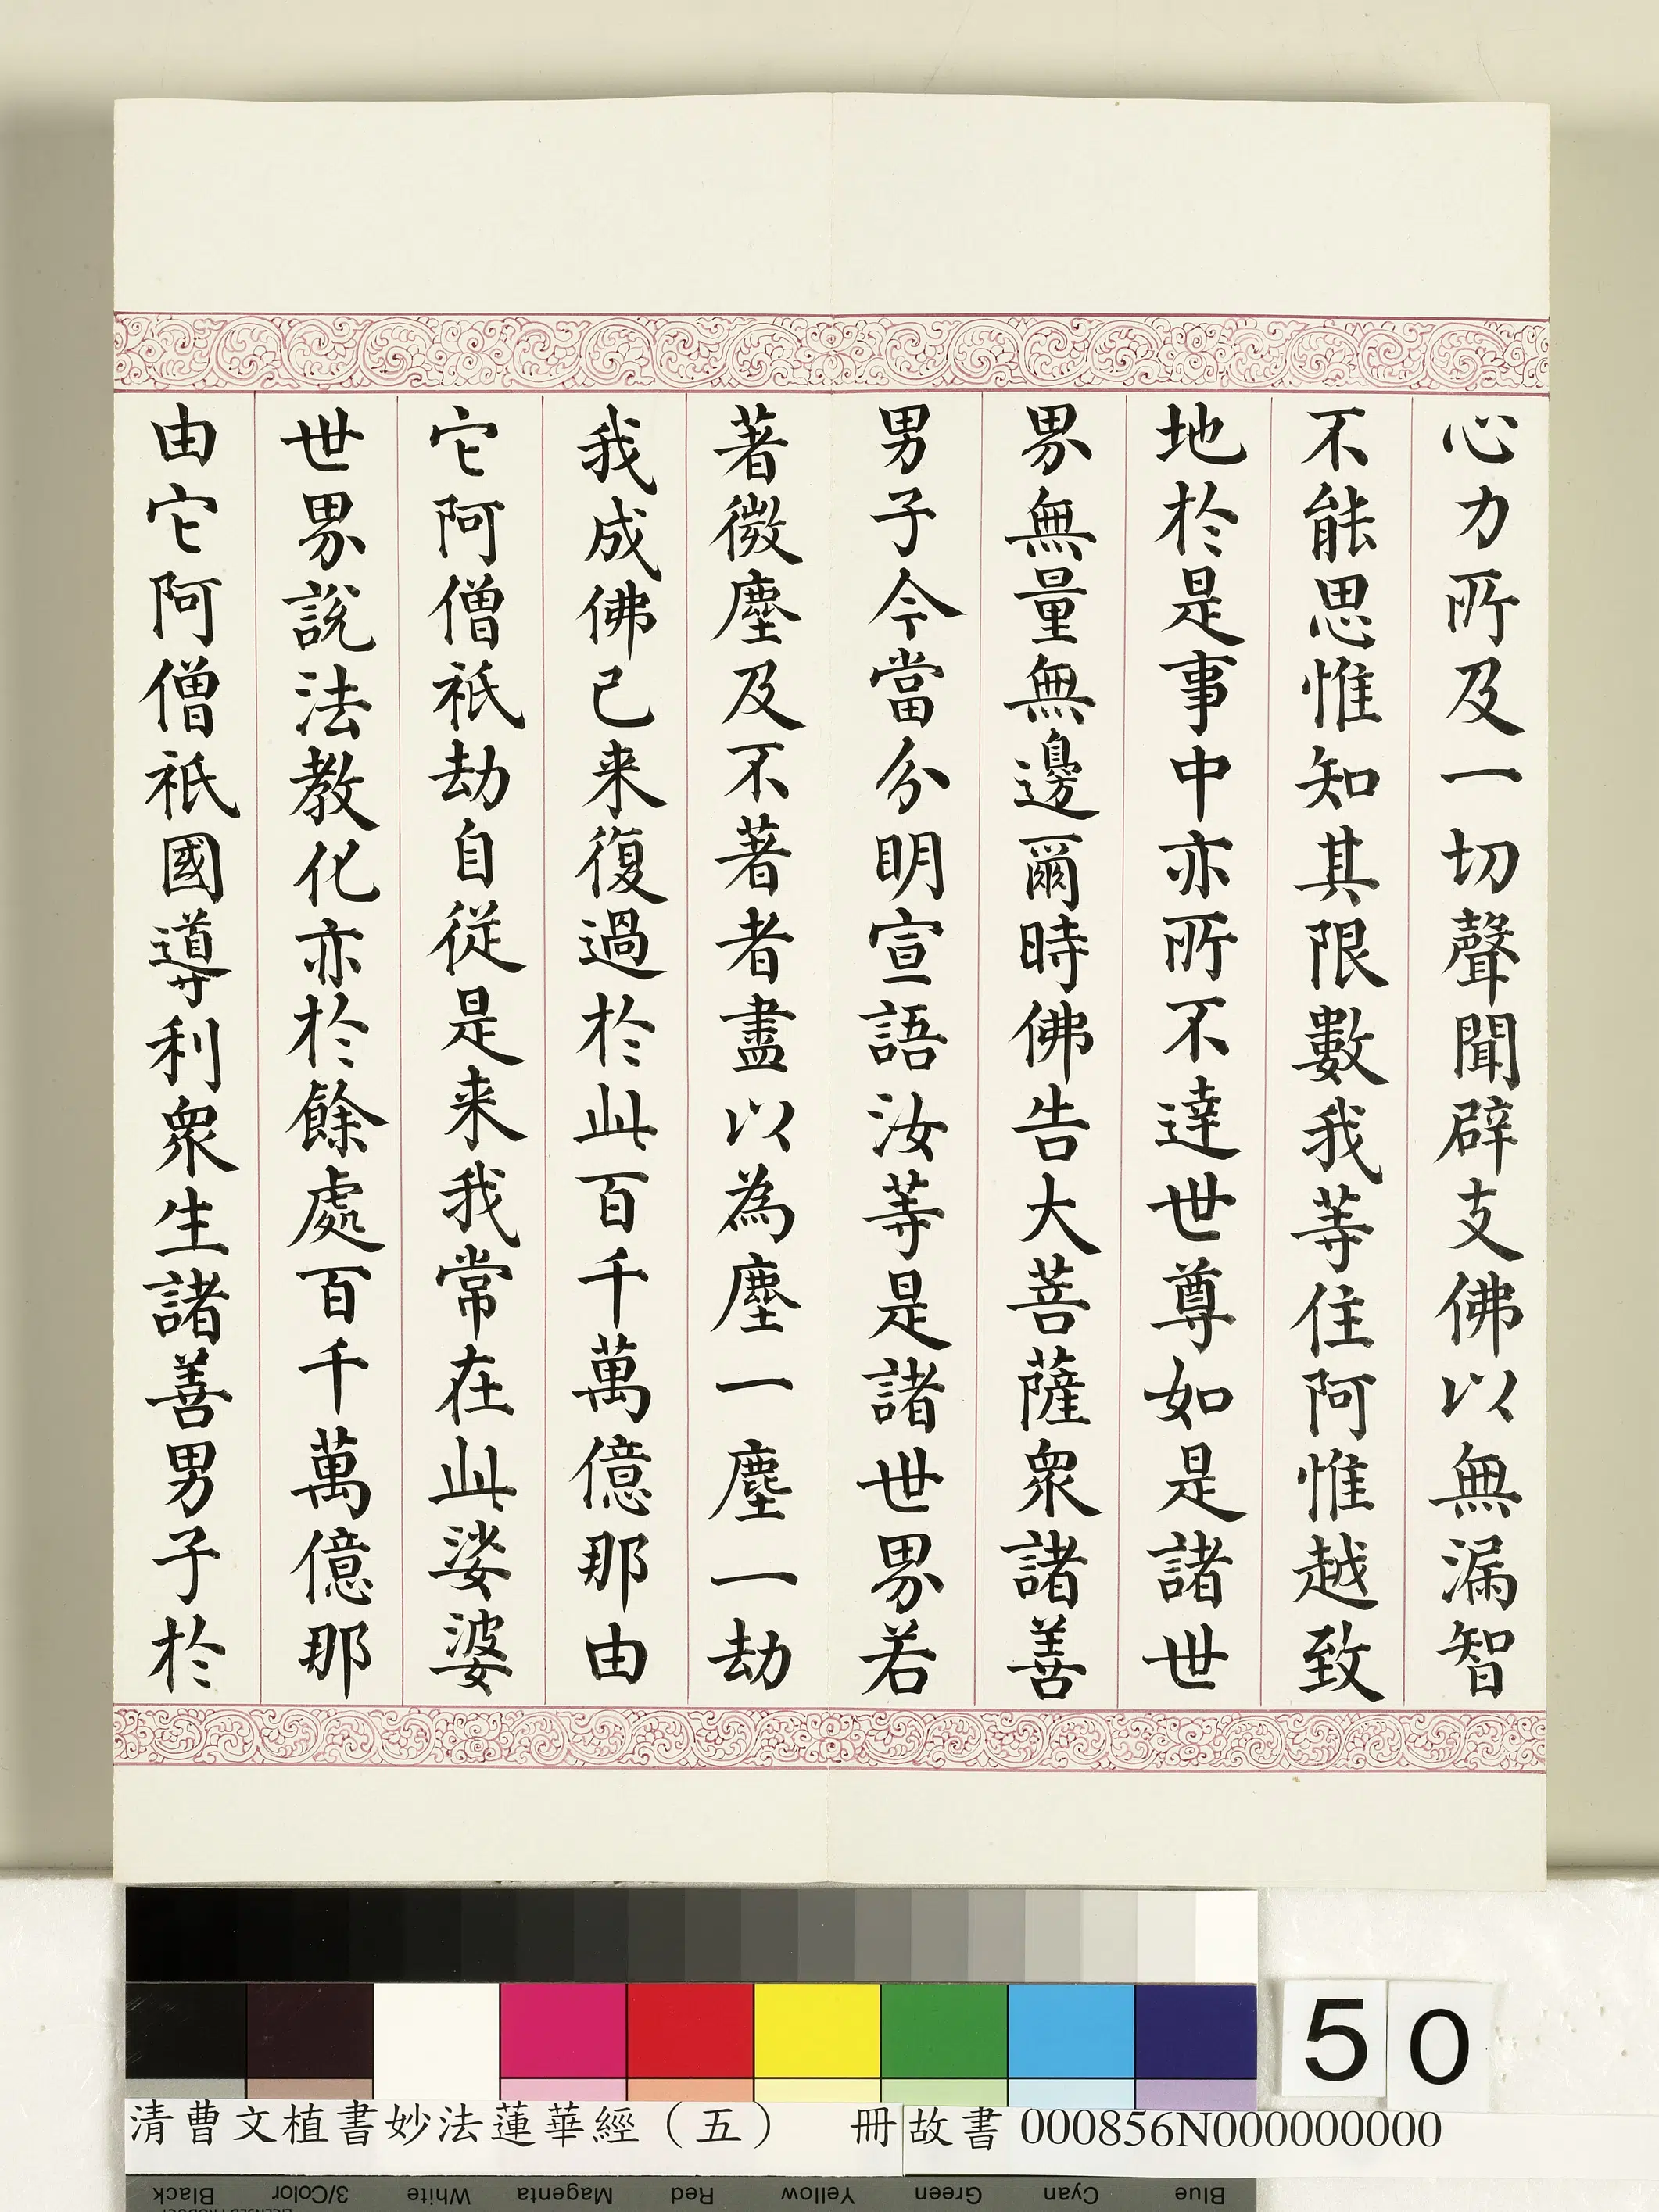 心力所及一切聲聞辟支佛以無漏智
不能思惟知其限數我等住阿惟越致
地於是事中亦所不達世尊如是諸世
界無量無邊爾時佛告大菩薩眾諸善
男子今當分明宣語汝等是諸世界若
著微塵及不著者盡以為塵一塵一劫
我成佛已来復過於此百千萬億那由
它阿僧祇劫自從是来我常在此娑婆
世界說法教化亦於餘處百千萬億那
由它阿僧祇國導利眾生諸善男子於
50
清曹文植書妙法蓮華經（五） 冊 故書 000856N000000000
Black 3/Color White Magenta Red Yellow Green Cyan Blue